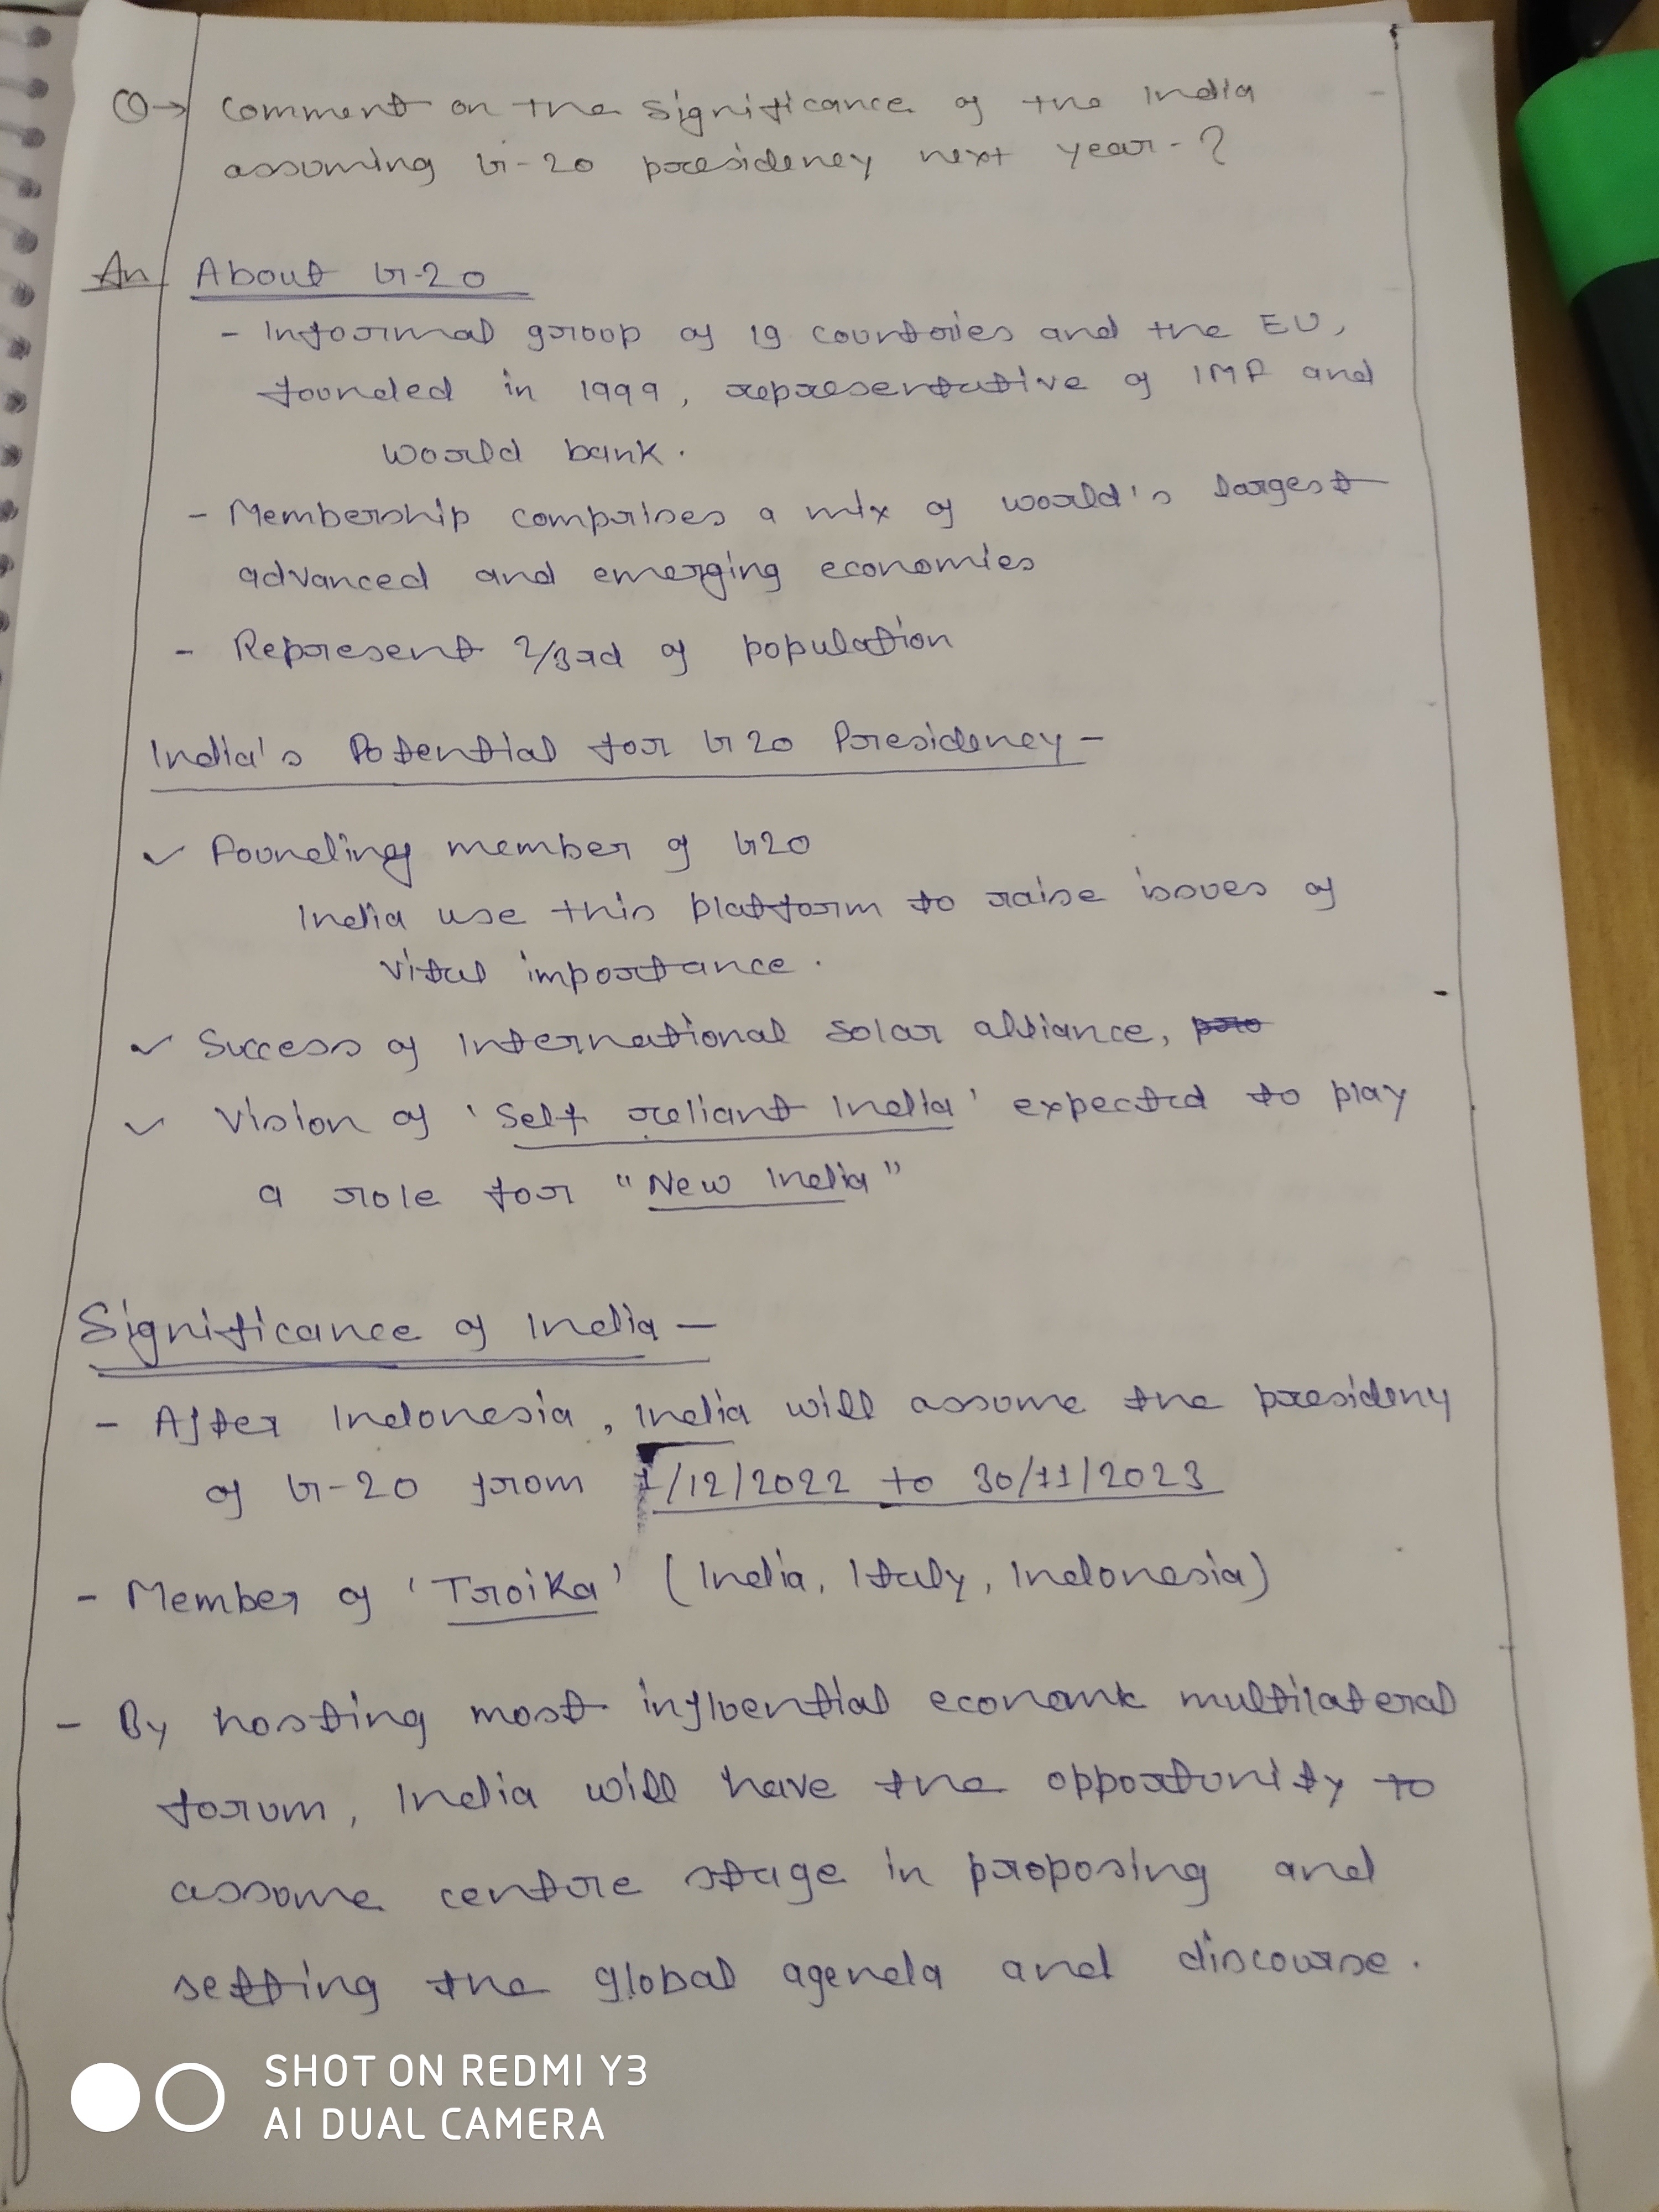 Q→ Comment on the significance of the India
assuming G-20 presidency next year-?
An
About G-20
- Informal group of 19 countries and the EU,
founded in 1999, representative of IMF and
World bank.
- Membership comprises a mix of world's largest
advanced and emerging economies
- Represent 2/3rd of population
India's Potential for G20 Presidency-
✓ Founding member of G20
India use this platform to raise issues of
vital importance.
✓ Success of International solar alliance,
✓ Vision of 'Self reliant India' expected to play
a role for "New India"
Significance of India-
- After Indonesia, India will assume the presideny
of G-20 from 1/12/2022 to 30/11/2023
- Member of 'Troika' (India, Italy, Indonesia)
- By hosting most influential economic multilateral
forum, India will have the opportunity to
assume centre stage in proposing and
setting the global agenda and discourse.
SHOT ON REDMI Y3
AI DUAL CAMERA